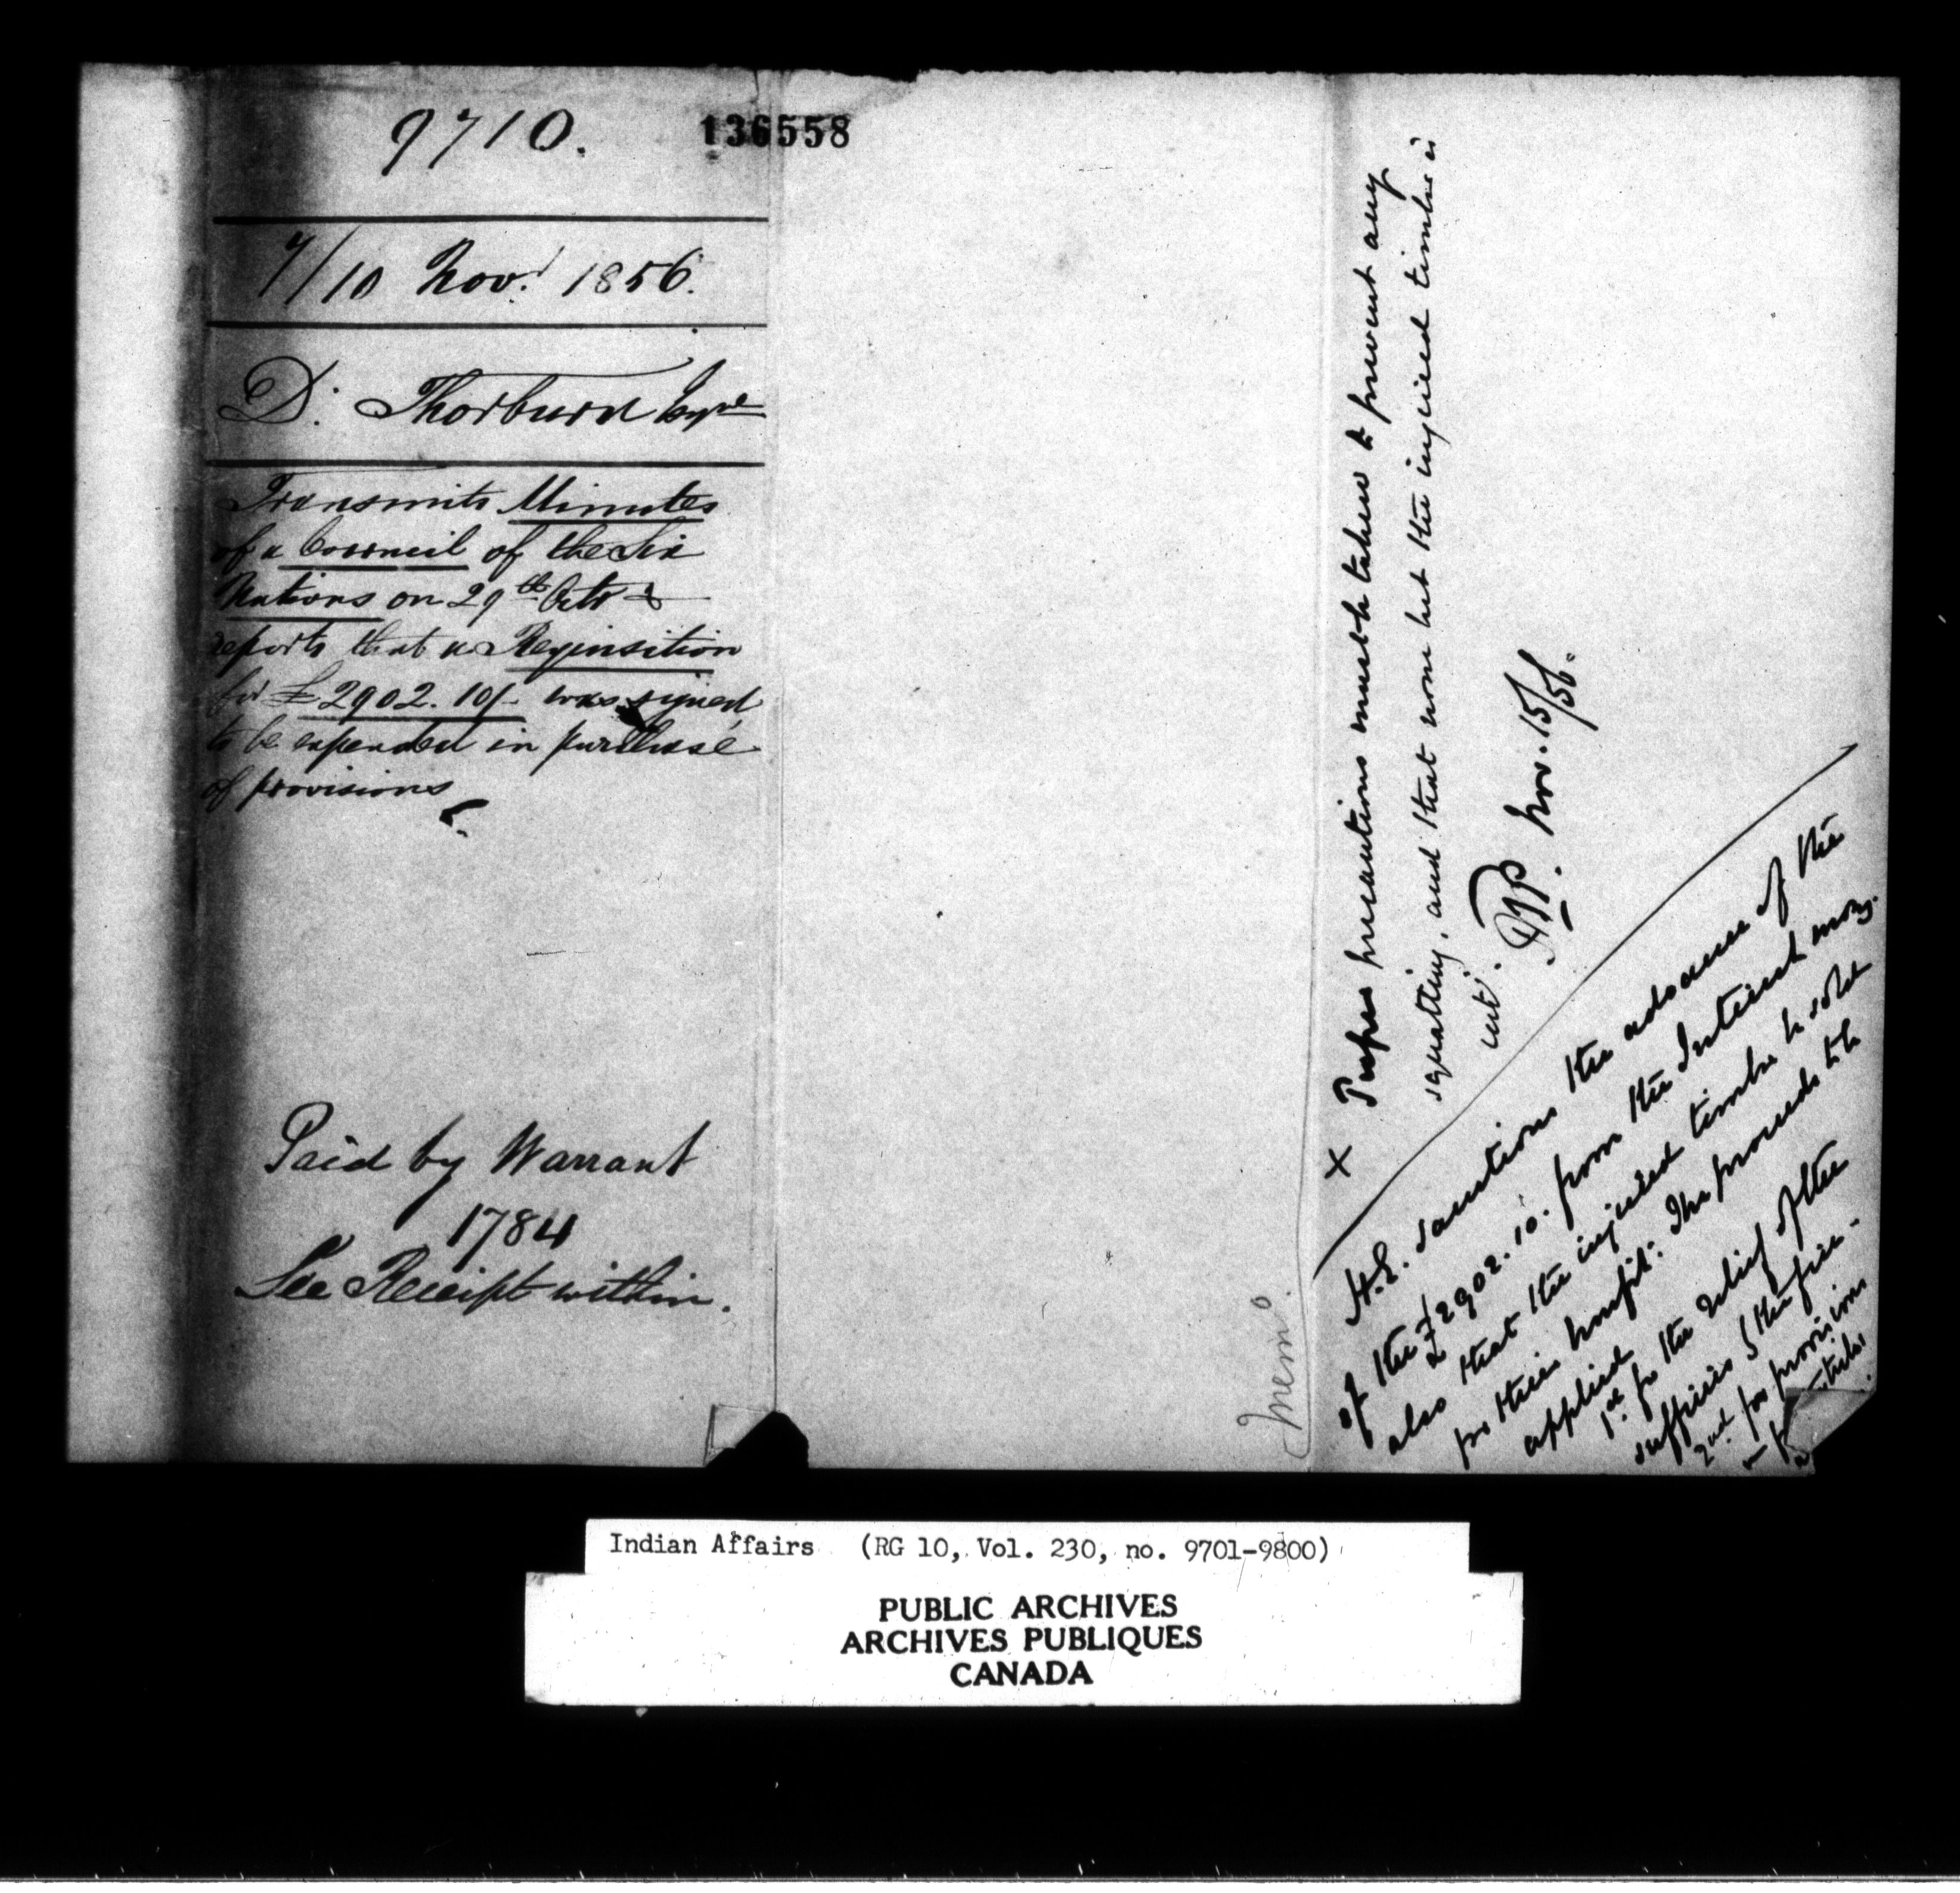 9710.
136558
7/10 Nov.r 1856.
D. Thorburn Esqre
Transmits Minutes
of a Council of the Six
Nations on 29th Octr &
reports that a Requisition
for £2902.10/- was signed
to be expended in purchase
of provisions
Paid by Warrant
1784
See Receipt within.
Memo.
X Proper precautions must be taken to prevent any
squatting, and that none but the injured timber is
cut.
Nov. 15/56.
H.E. sanctions the advance of the
of the £2902.10. from the Interest mony.
also that the injured timber be sold
for their benefit. The proceeds to be
applied
1st for the relief of the
sufferers by the fire.
2nd for provisions
Indian Affairs (RG 10, Vol. 230, no. 9701-9800)
PUBLIC ARCHIVES
ARCHIVES PUBLIQUES
CANADA